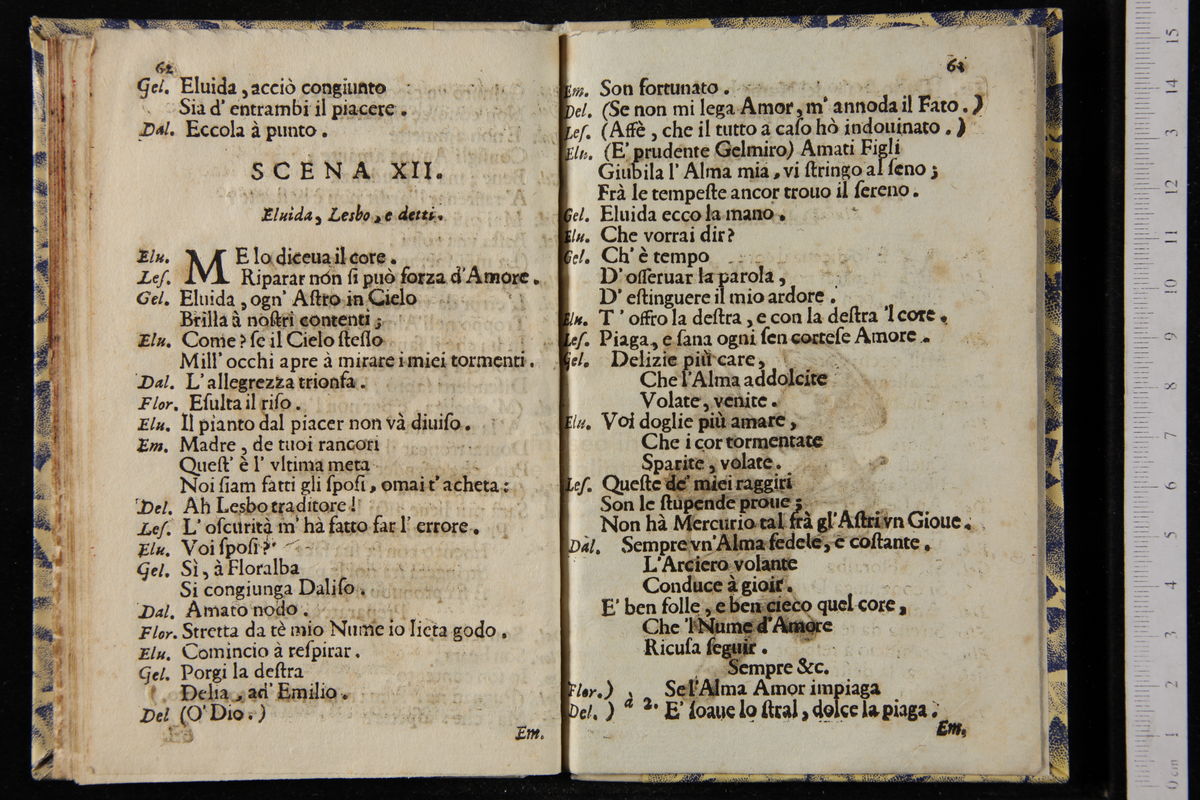 62
Gel. Eluida, acciò congiunto
Sia d' entrambi il piacere.
Dal. Eccola à punto.
SCENA XII.
Eluida, Lesbo, e detti.
Elu. ME lo diceua il core.
Leſ. Riparar non ſi può forza d'Amore.
Gel. Eluida, ogn' Aſtro in Cielo
Brilla à noſtri contenti;
Elu. Come? ſe il Cielo ſteſſo
Mill' occhi apre à mirare i miei tormenti.
Dal. L'allegrezza trionfa.
Flor. Eſulta il riſo.
Elu. Il pianto dal piacer non và diuiſo.
Em. Madre, de tuoi rancori
Queſt' è l' vltima meta
Noi ſiam fatti gli ſpoſi, omai t'acheta:
Del. Ah Lesbo traditore!
Leſ. L' oſcurità m' hà fatto far l' errore.
Elu. Voi ſpoſi?
Gel. Sì, à Floralba
Si congiunga Daliſo.
Dal. Amato nodo.
Flor. Stretta da tè mio Nume io lieta godo.
Elu. Comincio à reſpirar.
Gel. Porgi la deſtra
Delia, ad' Emilio.
Del (O' Dio.)
Em.
63
Em. Son fortunato.
Del. (Se non mi lega Amor, m' annoda il Fato.)
Leſ. (Affè, che il tutto a caſo hò indouinato.)
Elu. (E' prudente Gelmiro) Amati Figli
Giubila l' Alma mia, vi ſtringo al ſeno;
Frà le tempeſte ancor trouo il ſereno.
Gel. Eluida ecco la mano.
Elu. Che vorrai dir?
Gel. Ch' è tempo
D' oſſeruar la parola,
D' eſtinguere il mio ardore.
Elu. T' offro la deſtra, e con la deſtra 'l core.
Leſ. Piaga, e ſana ogni ſen corteſe Amore.
Gel. Delizie più care,
Che l'Alma addolcite
Volate, venite.
Elu. Voi doglie più amare,
Che i cor tormentate
Sparite, volate.
Leſ. Queſte de' miei raggiri
Son le ſtupende proue;
Non hà Mercurio tal frà gl'Aſtri vn Gioue.
Dal. Sempre vn'Alma fedele, e coſtante.
L'Arciero volante
Conduce à gioir.
E' ben folle, e ben cieco quel core,
Che 'l Nume d'Amore
Ricuſa ſeguir.
Sempre &c.
Flor.) Se l'Alma Amor impiaga
Del. ) à 2. E' ſoaue lo ſtral, dolce la piaga.
Em.
15
14
13
12
11
10
9
8
7
6
5
4
3
2
1
0 cm